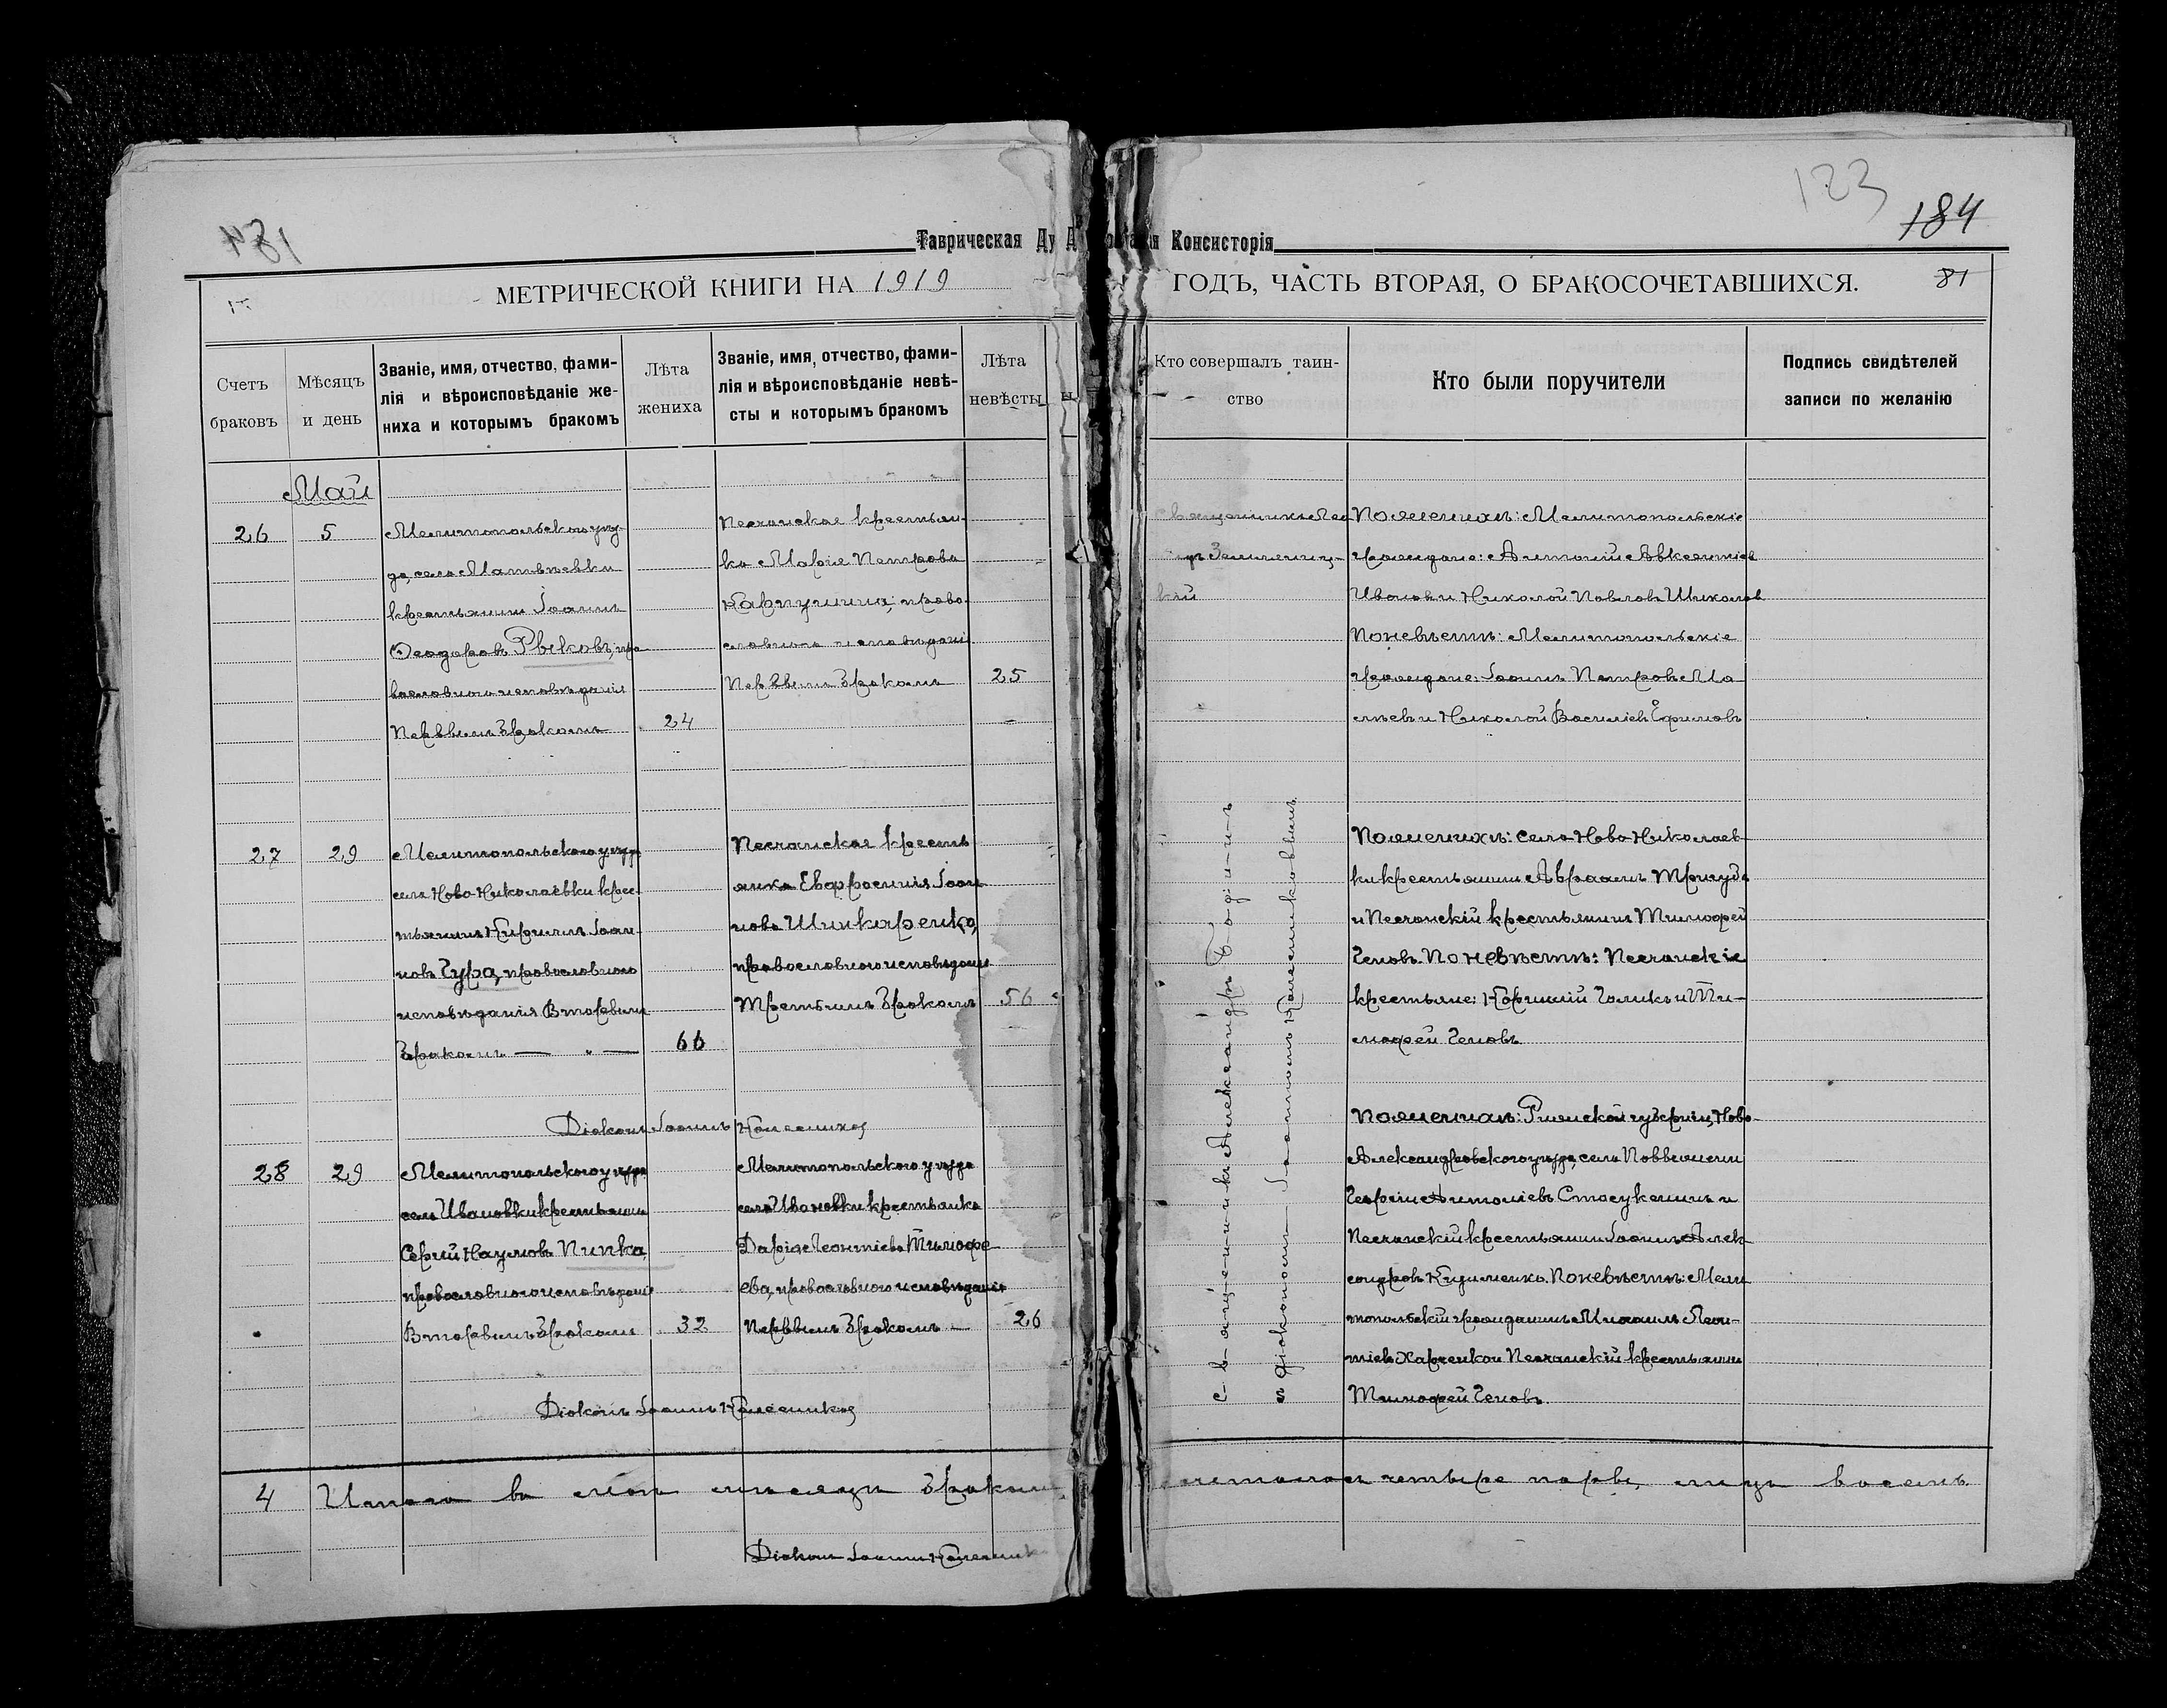 184
123
184
Таврическая Ду Консисторія
МЕТРИЧЕСКОЙ КНИГИ НА 1919
ГОДЪ, ЧАСТЬ ВТОРАЯ, О БРАКОСОЧЕТАВШИХСЯ.
81
Счетъ браковъ
Мѣсяцъ и день
Званіе, имя, отчество, фами-
лія и вѣроисповѣданіе же-
ниха и которымъ бракомъ
Лѣта
жениха
Званіе, имя, отчество, фами-
лія и вѣроисповѣданіе невѣ-
сты и которымъ бракомъ
Лѣта
невѣсты
Кто совершалъ таин-
ство
Кто были поручители
Подпись свидѣтелей
записи по желанію
Май
26
5
Мелитопольскаго уѣз-
да, села Матвѣевки
крестьянинъ Іоаннъ
Ѳеодоровъ Рвъковъ, пра
вославнаго исповѣданія
Первымъ бракомъ
24
Песчанская крестьян-
ка Марія Петрова
Карпушина, право-
славнаго исповѣданія
Первымъ бракомъ
25
Священникъ
Поженихѣ: Мелитопольскіе
граждане: Антоній Авксентіев
Ивановъ и Николай Павловъ Шиколов
Поневѣстѣ: Мелитопольскіе
граждане: Іоаннъ Петровъ Ма
лѣевъ и Николай Василіевъ Ефимовъ
27
29
Мелитопольскаго уѣзда
села Ново-Николаевки крес-
тьянинъ Кириллъ Іоан-
новъ Гура, православнаго
исповѣданія Вторымъ
бракомъ — " —
66
Песчанская кресть
янка Евфросинія Іоан
нова Шинкаренко,
православнаго исповѣданія
Третьимъ бракомъ
56
священникъ Александръ Бодинъ
съ діакономъ Іоанномъ Колесниковымъ
Поженихѣ: села Ново-Николаев-
ки крестьянинъ Авраамъ Тригуб
и Песчанскій крестьянинъ Тимофей
Геновъ. Поневѣстѣ: Песчанскіе
крестьяне: Корнилій Галикъ и Ти-
мофей Геновъ
Діаконъ Іоаннъ Колесниковъ
28
29
Мелитопольскаго уѣзда
села Ивановки крестьянин
Сергій Наумовъ Пипка
православнаго исповѣданія
Вторымъ бракомъ
32
Мелитопольскаго уѣзда
села Ивановки крестьянка
Дарія Леонтіева Тимофе
ева, православнаго исповѣданія
Первымъ бракомъ —
26
Поженихѣ: губерніи, Ново-
Александровскаго уѣзда, села
Антоніевъ и
Песчанскій крестьянинъ Іоаннъ Алек
сандровъ Поневѣстѣ: Мели
топольскій гражданинъ Михаилъ Леон-
тіевъ Харченко и Песчанскій крестьянин
Тимофей Геновъ
Діаконъ Іоаннъ Колесниковъ
4
Итого въ маѣ мѣсяцѣ бракомъ
четыре пары, лицъ восемь.
Діаконъ Іоаннъ